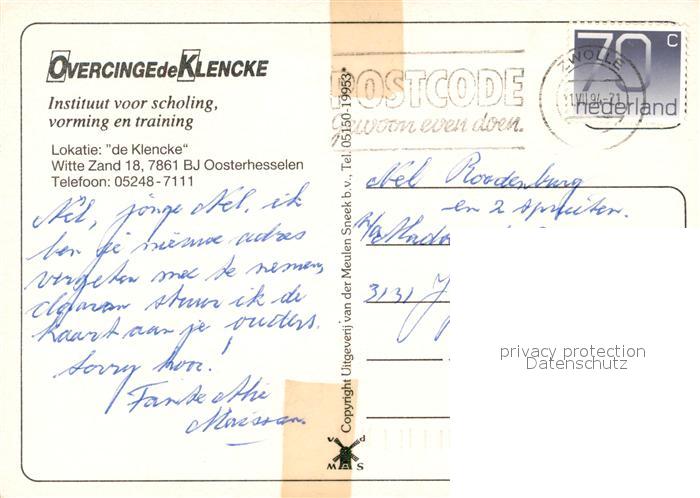 OVERCINGEdeKLENCKE
Instituut voor scholing,
vorming en training
Lokatie: "de Klencke"
Witte Zand 18, 7861 BJ Oosterhesselen
Telefoon: 05248-7111
Nel, jonge Nel, ik
ben je nieuwe adres
vergeten mee te nemen,
daarom stuur ik de
kaart aan je ouders.
Sorry hoor!
Tante
Copyright Uitgeverij van der Meulen Sneek b.v., Tel. 05150-19953*
v d
M A S
POSTCODE
gewoon even doen.
ZWOLLE
11 VII 94-21
70 c
nederland
Nel Roodenburg
en 2 spruiten.
3131
privacy protection
Datenschutz